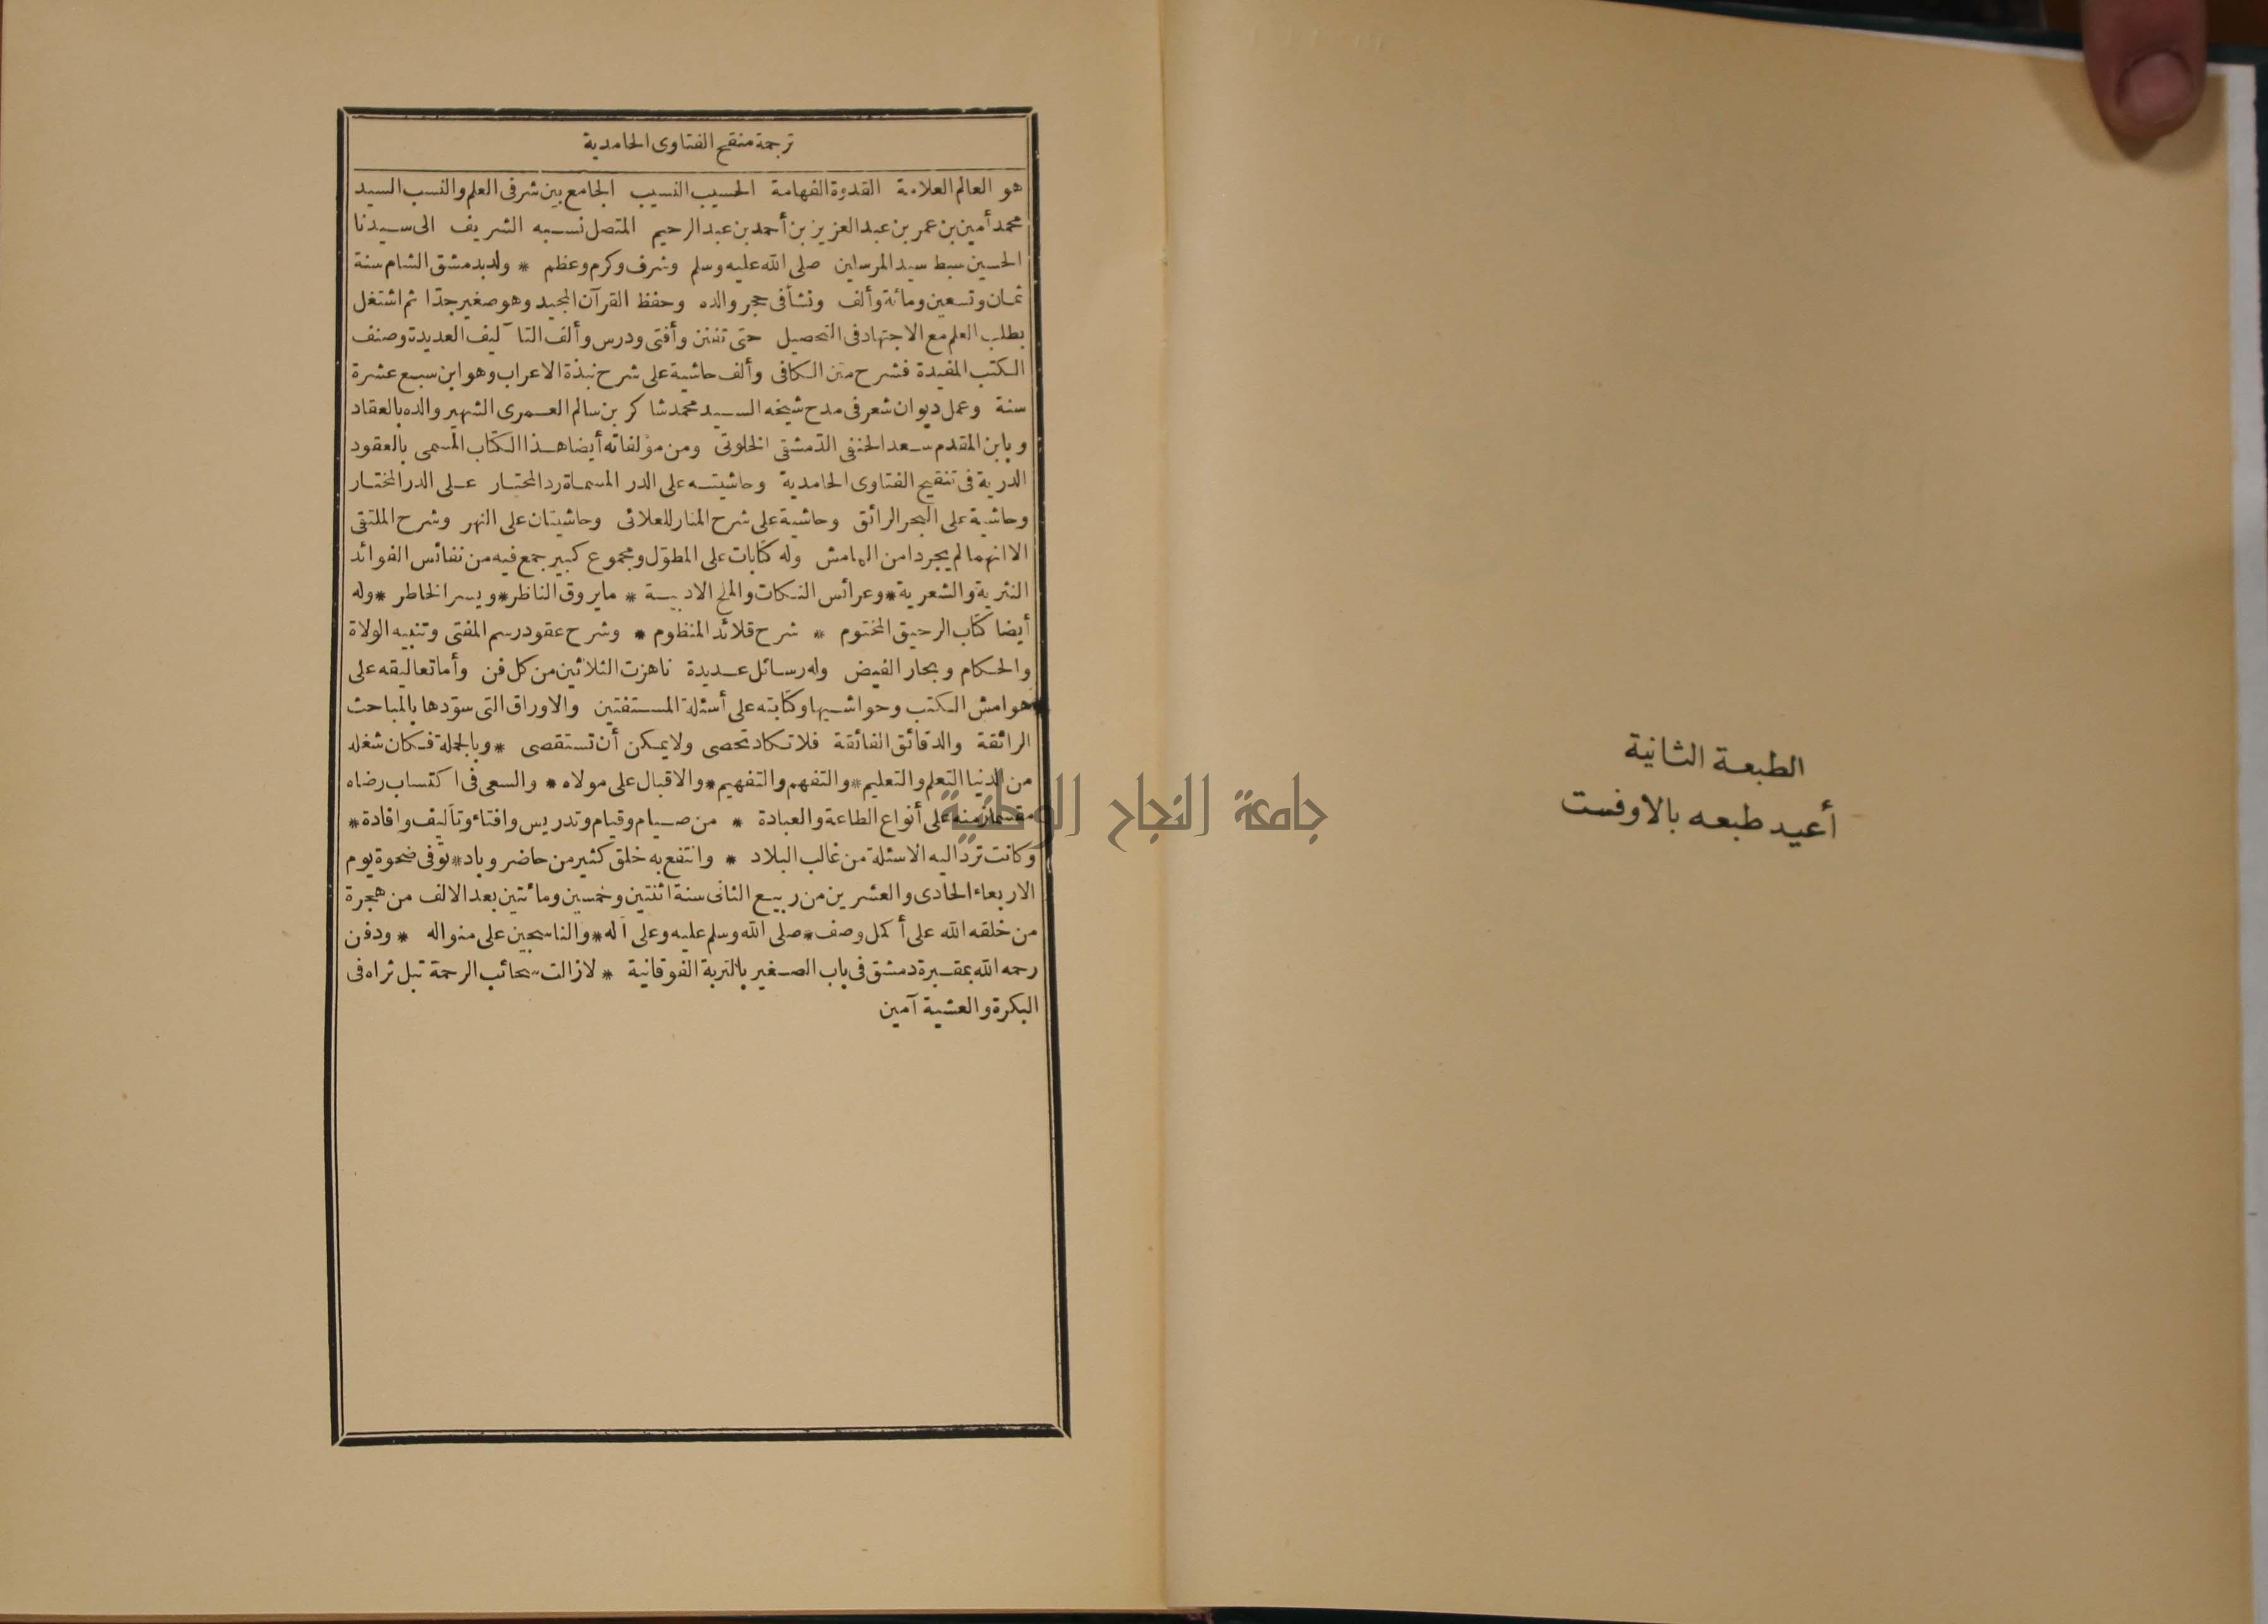 الطبعة الثانية
أعيد طبعه بالاوفست
ترجمة منقح الفتاوى الحامدية
هو العالم العلامة القدوة الفهامة الحسيب النسيب الجامع بين شرفى العلم والنسب السيد
محمد أمين بن عمر بن عبد العزيز بن أحمد بن عبد الرحيم المتصل نسبه الشريف الى سيدنا
الحسين سبط سيد المرسلين صلى الله عليه وسلم وشرف وكرم وعظم * ولد بدمشق الشام سنة
ثمان وتسعين ومائة وألف ونشأ فى حجر والده وحفظ القرآن المجيد وهو صغير جدّا ثم اشتغل
بطلب العلم مع الاجتهاد فى التحصيل حتى تفنن وأفتى ودرس وألف التآليف العديدة وصنف
الكتب المفيدة فشرح متن الكافى وألف حاشية على شرح نبذة الاعراب وهو ابن سبع عشرة
سنة وعمل ديوان شعر فى مدح شيخه السيد محمد شاكر بن سالم العمرى الشهير والده بالعقاد
وبابن المقدم سعد الحنفى الدّمشقى الخلوتى ومن مؤلفاته أيضا هذا الكتاب المسمى بالعقود
الدرية فى تنقيح الفتاوى الحامدية وحاشيته على الدر المسماة رد المحتار على الدر المختار
وحاشية على البحر الرائق وحاشية على شرح المنار للعلائى وحاشيتان على النهر وشرح الملتقى
الا انهما لم يجردا من الهامش وله كتابات على المطوّل ومجموع كبير جمع فيه من نفائس الفوائد
النثرية والشعرية * وعرائس النكات والملح الادبية * ما يروق الناظر * ويسر الخاطر * وله
أيضا كتاب الرحيق المختوم * شرح قلائد المنظوم * وشرح عقود رسم المفتى وتنبيه الولاة
والحكام وبحار الفيض وله رسائل عديدة ناهزت الثلاثين من كل فن وأما تعاليقه على
هوامش الكتب وحواشيها وكتابته على أسئلة المستفتين والاوراق التى سوّدها بالمباحث
الرائقة والدقائق الفائقة فلا تكاد تحصى ولا يمكن أن تستقصى * وبالجملة فكان شغله
من الدنيا التعلم والتعليم * والتفهم والتفهيم * والاقبال على مولاه * والسعى فى اكتساب رضاه
مقسما زمنه على أنواع الطاعة والعبادة * من صيام وقيام وتدريس وافتاء وتأليف وافادة *
وكانت ترد اليه الاسئلة من غالب البلاد * وانتفع به خلق كثير من حاضر وباد * توّفى ضحوة يوم
الاربعاء الحادى والعشرين من ربيع الثانى سنة اثنتين وخمسين ومائتين بعد الالف من هجرة
من خلقه الله على أكمل وصف * صلى الله وسلم عليه وعلى آله * والناسجين على منواله * ودفن
رحمه الله بمقبرة دمشق فى باب الصغير بالتربة الفوقانية * لا زالت سحائب الرحمة تبل ثراه فى
البكرة والعشية آمين
جامعة النجاح الوطنية